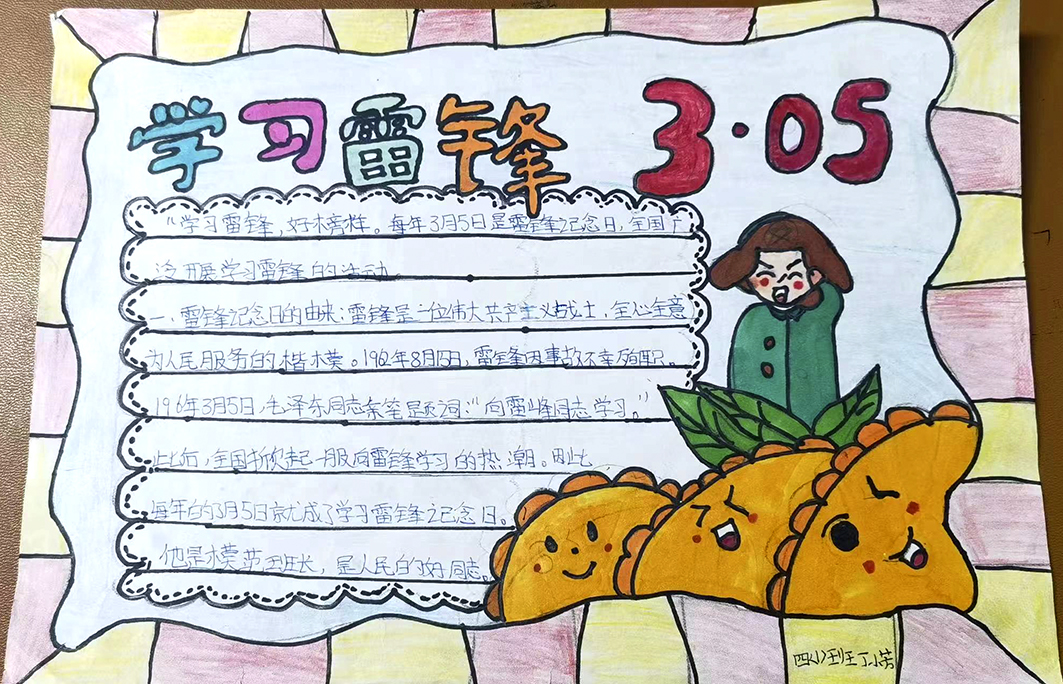 学习雷锋 3·05
"学习雷锋,好榜样。每年3月5日是雷锋记念日,全国广
泛开展学习雷锋的活动
一、雷锋记念日的由来:雷锋是一位伟大共产主义战士,全心全意
为人民服务的楷模。1962年8月15日,雷锋因事故不幸殉职。
196年3月5日,毛泽东同志亲笔题词:"向雷锋同志学习。"
此后,全国掀起一股向雷锋学习的热潮。因此
每年的3月5日就成了学习雷锋记念日。
他是模范班长,是人民的好同志。
四(1)班丁小芳